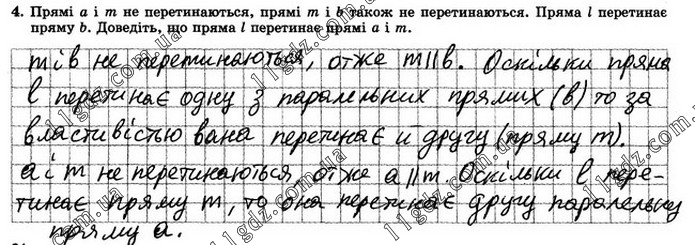 4. Прямі a і m не перетинаються, прямі m і b також не перетинаються. Пряма l перетинає
пряму b. Доведіть, що пряма l перетинає прямі a і m.
m і b не перетинаються, отже m||b. Оскільки пряма
l перетинає одну з паралельних прямих (b) то за
властивістю вона перетинає и другу (пряму m).
a і m не перетинаються отже a||m. Оскільки l пере-
тинає пряму m, то она перетинає другу паралельну
пряму a.
11gdz.com.ua